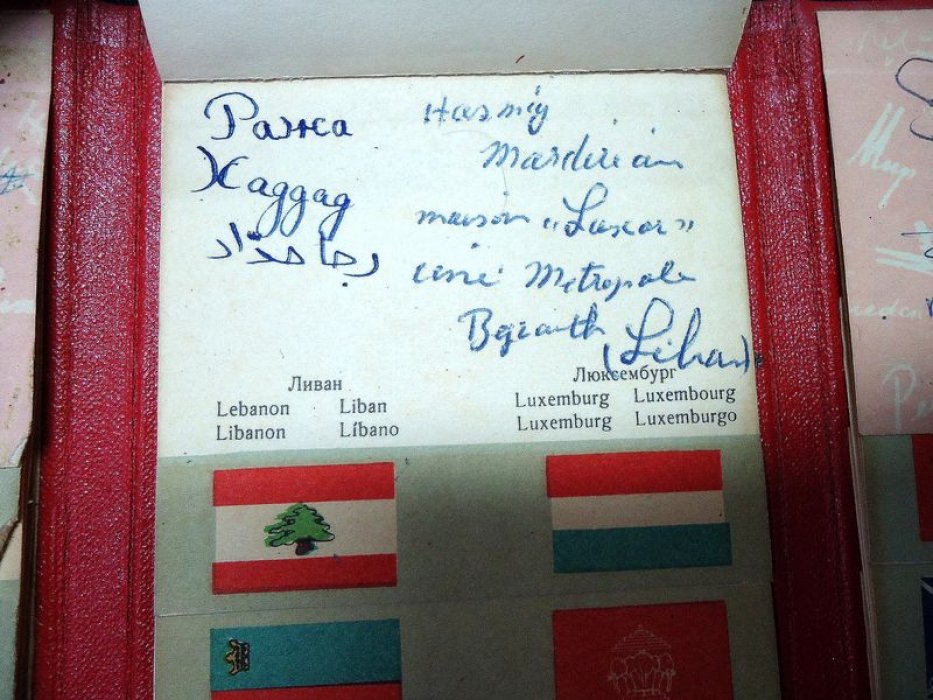 Ража
Хаддад
رجا حداد
Hasmig
Mardirian
maison „Luxor”
Metropole
Beyrouth
(Liban).
Ливан
Lebanon Liban
Libanon Líbano
Люксембург
Luxemburg Luxembourg
Luxemburg Luxemburgo